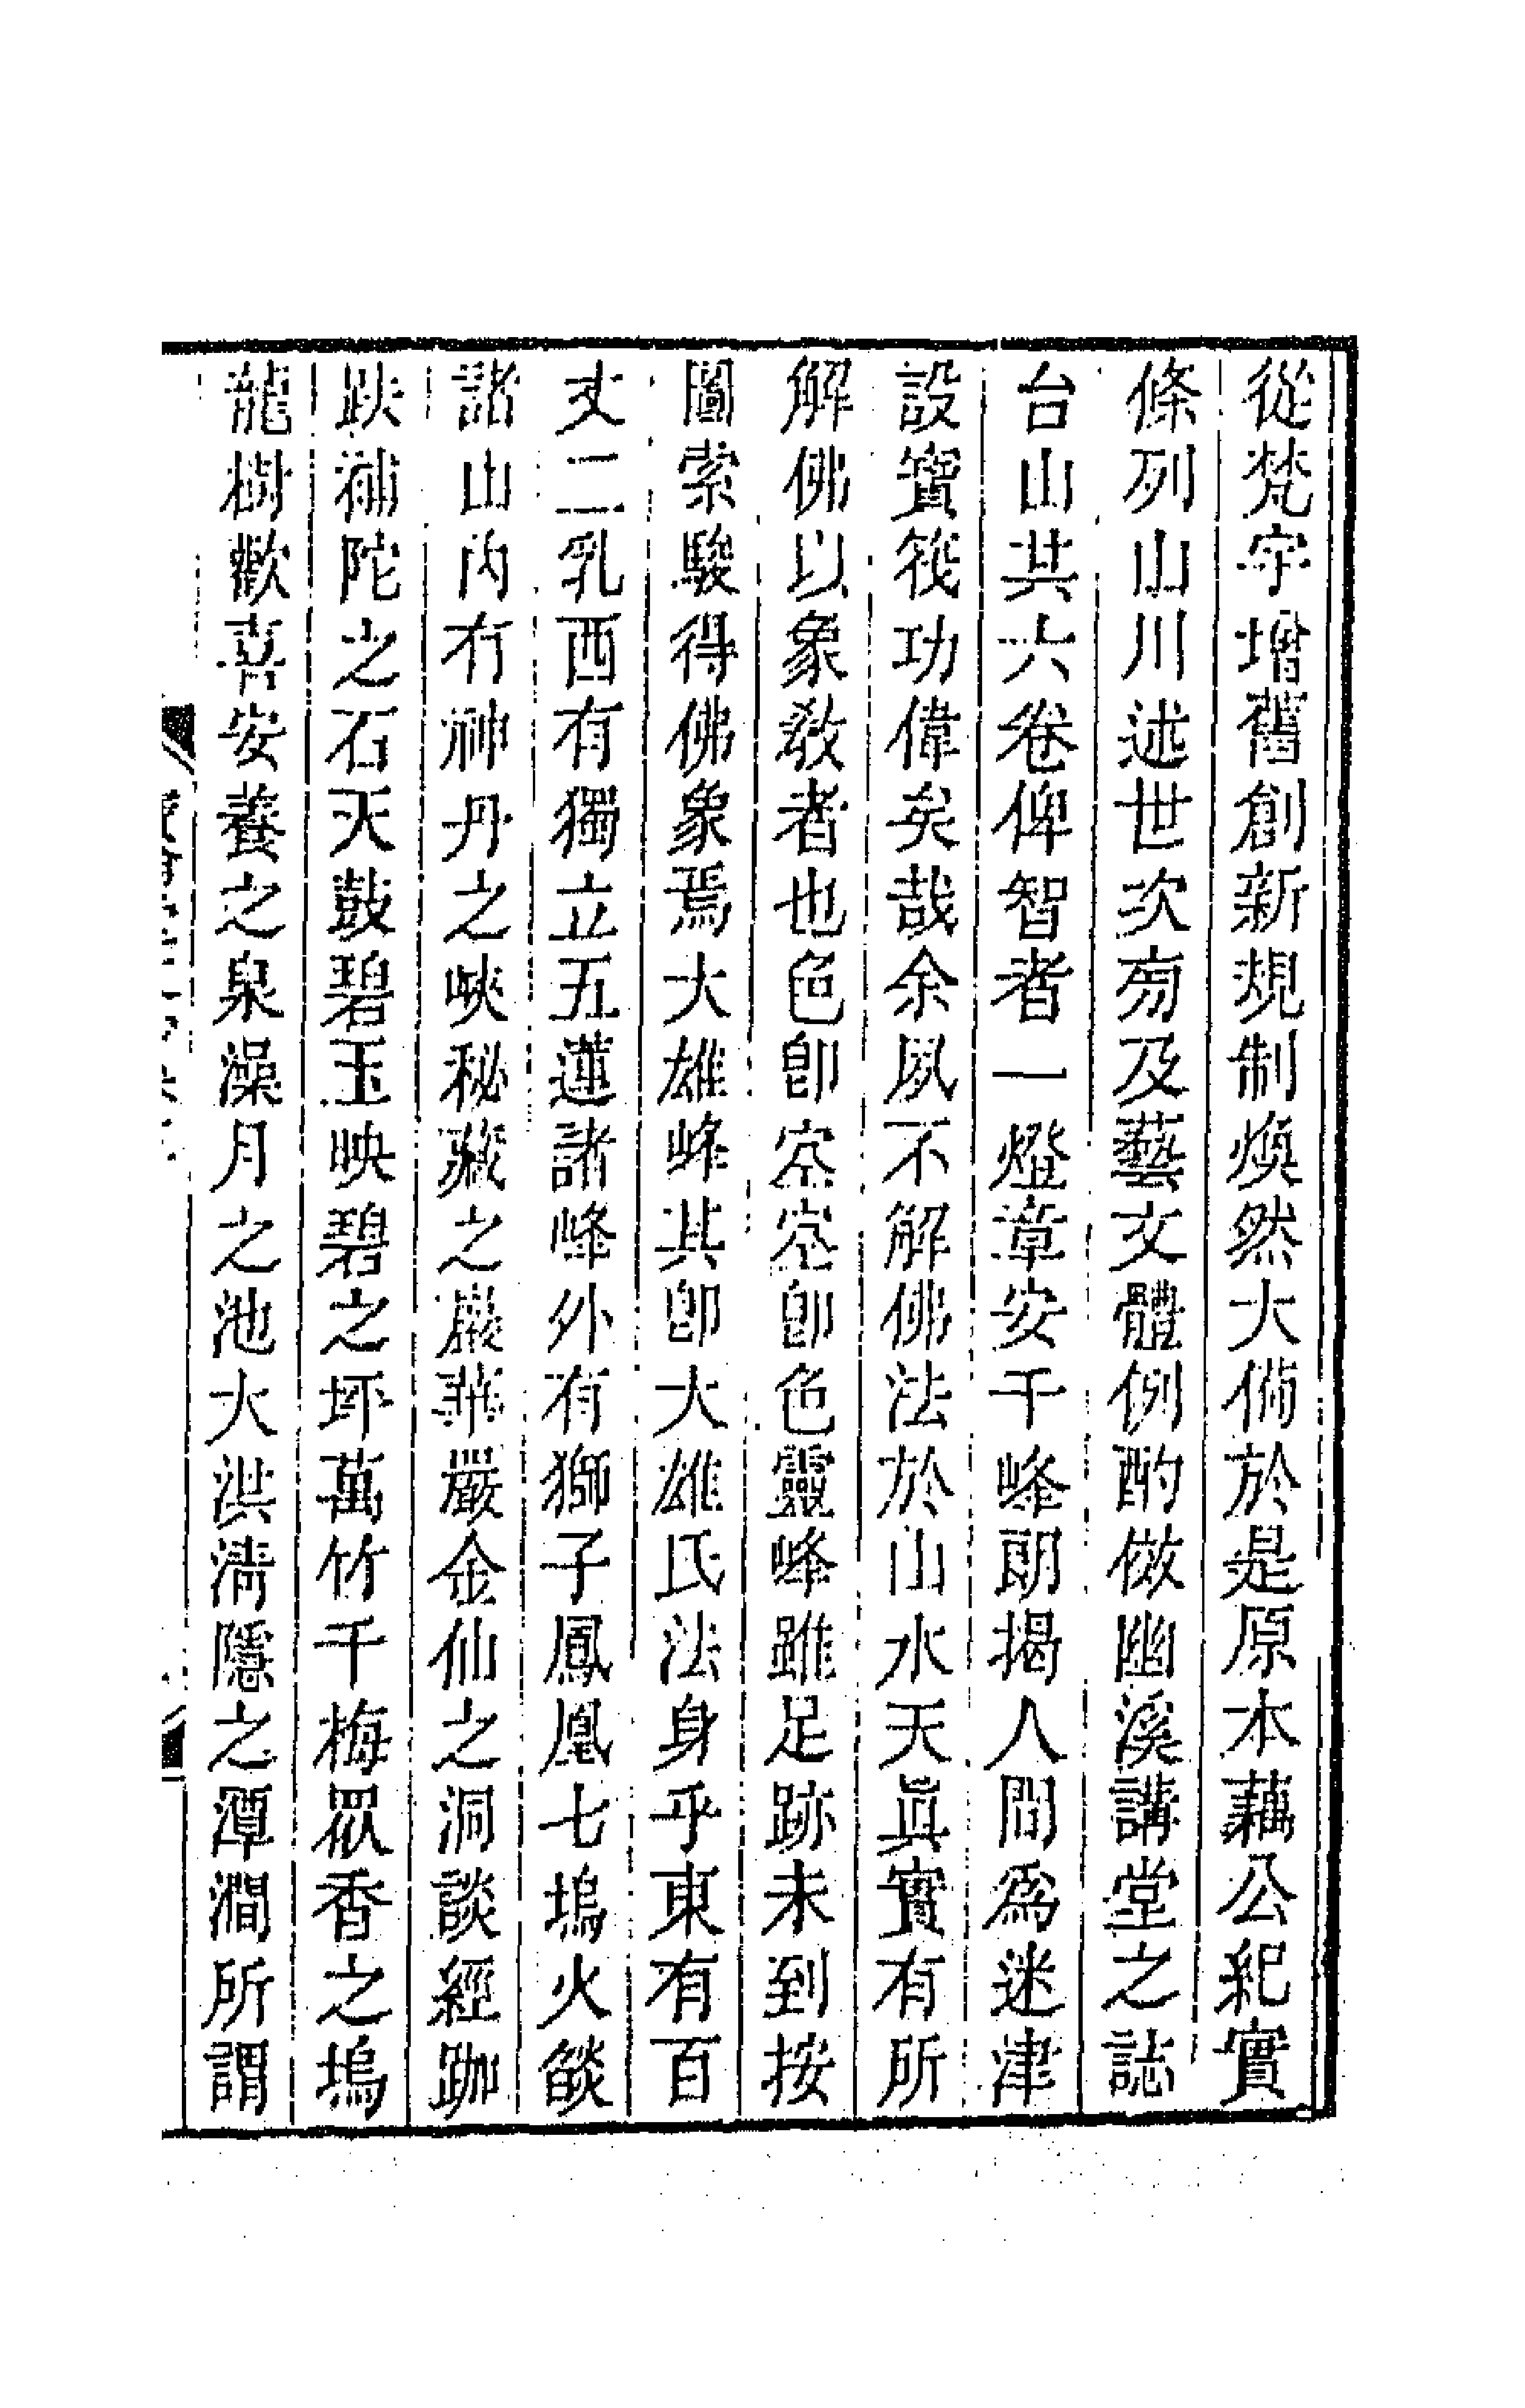 從梵宇增舊創新規制煥然大備於是原本藕公紀實
條列山川述世次㫄及藝文體例酌倣幽溪講堂之誌
台山其六卷俾智者一燈章安千峰朗揭人間爲迷津
設寶筏功偉矣哉余夙不解佛法於山水天眞實有所
解佛以象敎者也色卽空空卽色靈峰雖足跡未到按
圖索駿得佛象焉大雄峰其卽大雄氏法身乎東有百
丈二乳西有獨立五蓮諸峰外有獅子鳳凰七塢火餤
諸山內有神丹之峽秘藏之巖華嚴金仙之洞談經跏
趺補陀之石天鼓碧玉映碧之坪萬竹千梅眾香之塢
龍樹歡喜安養之泉澡月之池大洪淸隱之潭澗所謂